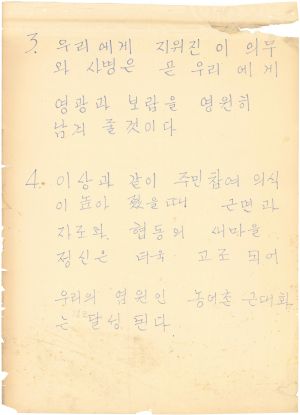 3. 우리에게 지워진 이 의무
와 사명은 곧 우리 에게
영광과 보람을 영원히
남겨 줄것이다
4. 이상과 같이 주민참여 의식
이 높아 졌을때 근면과
자조와 협동의 새마을
정신은 더욱 고조 되어
우리의 염원인 농어촌 근대화
는 달성 된다